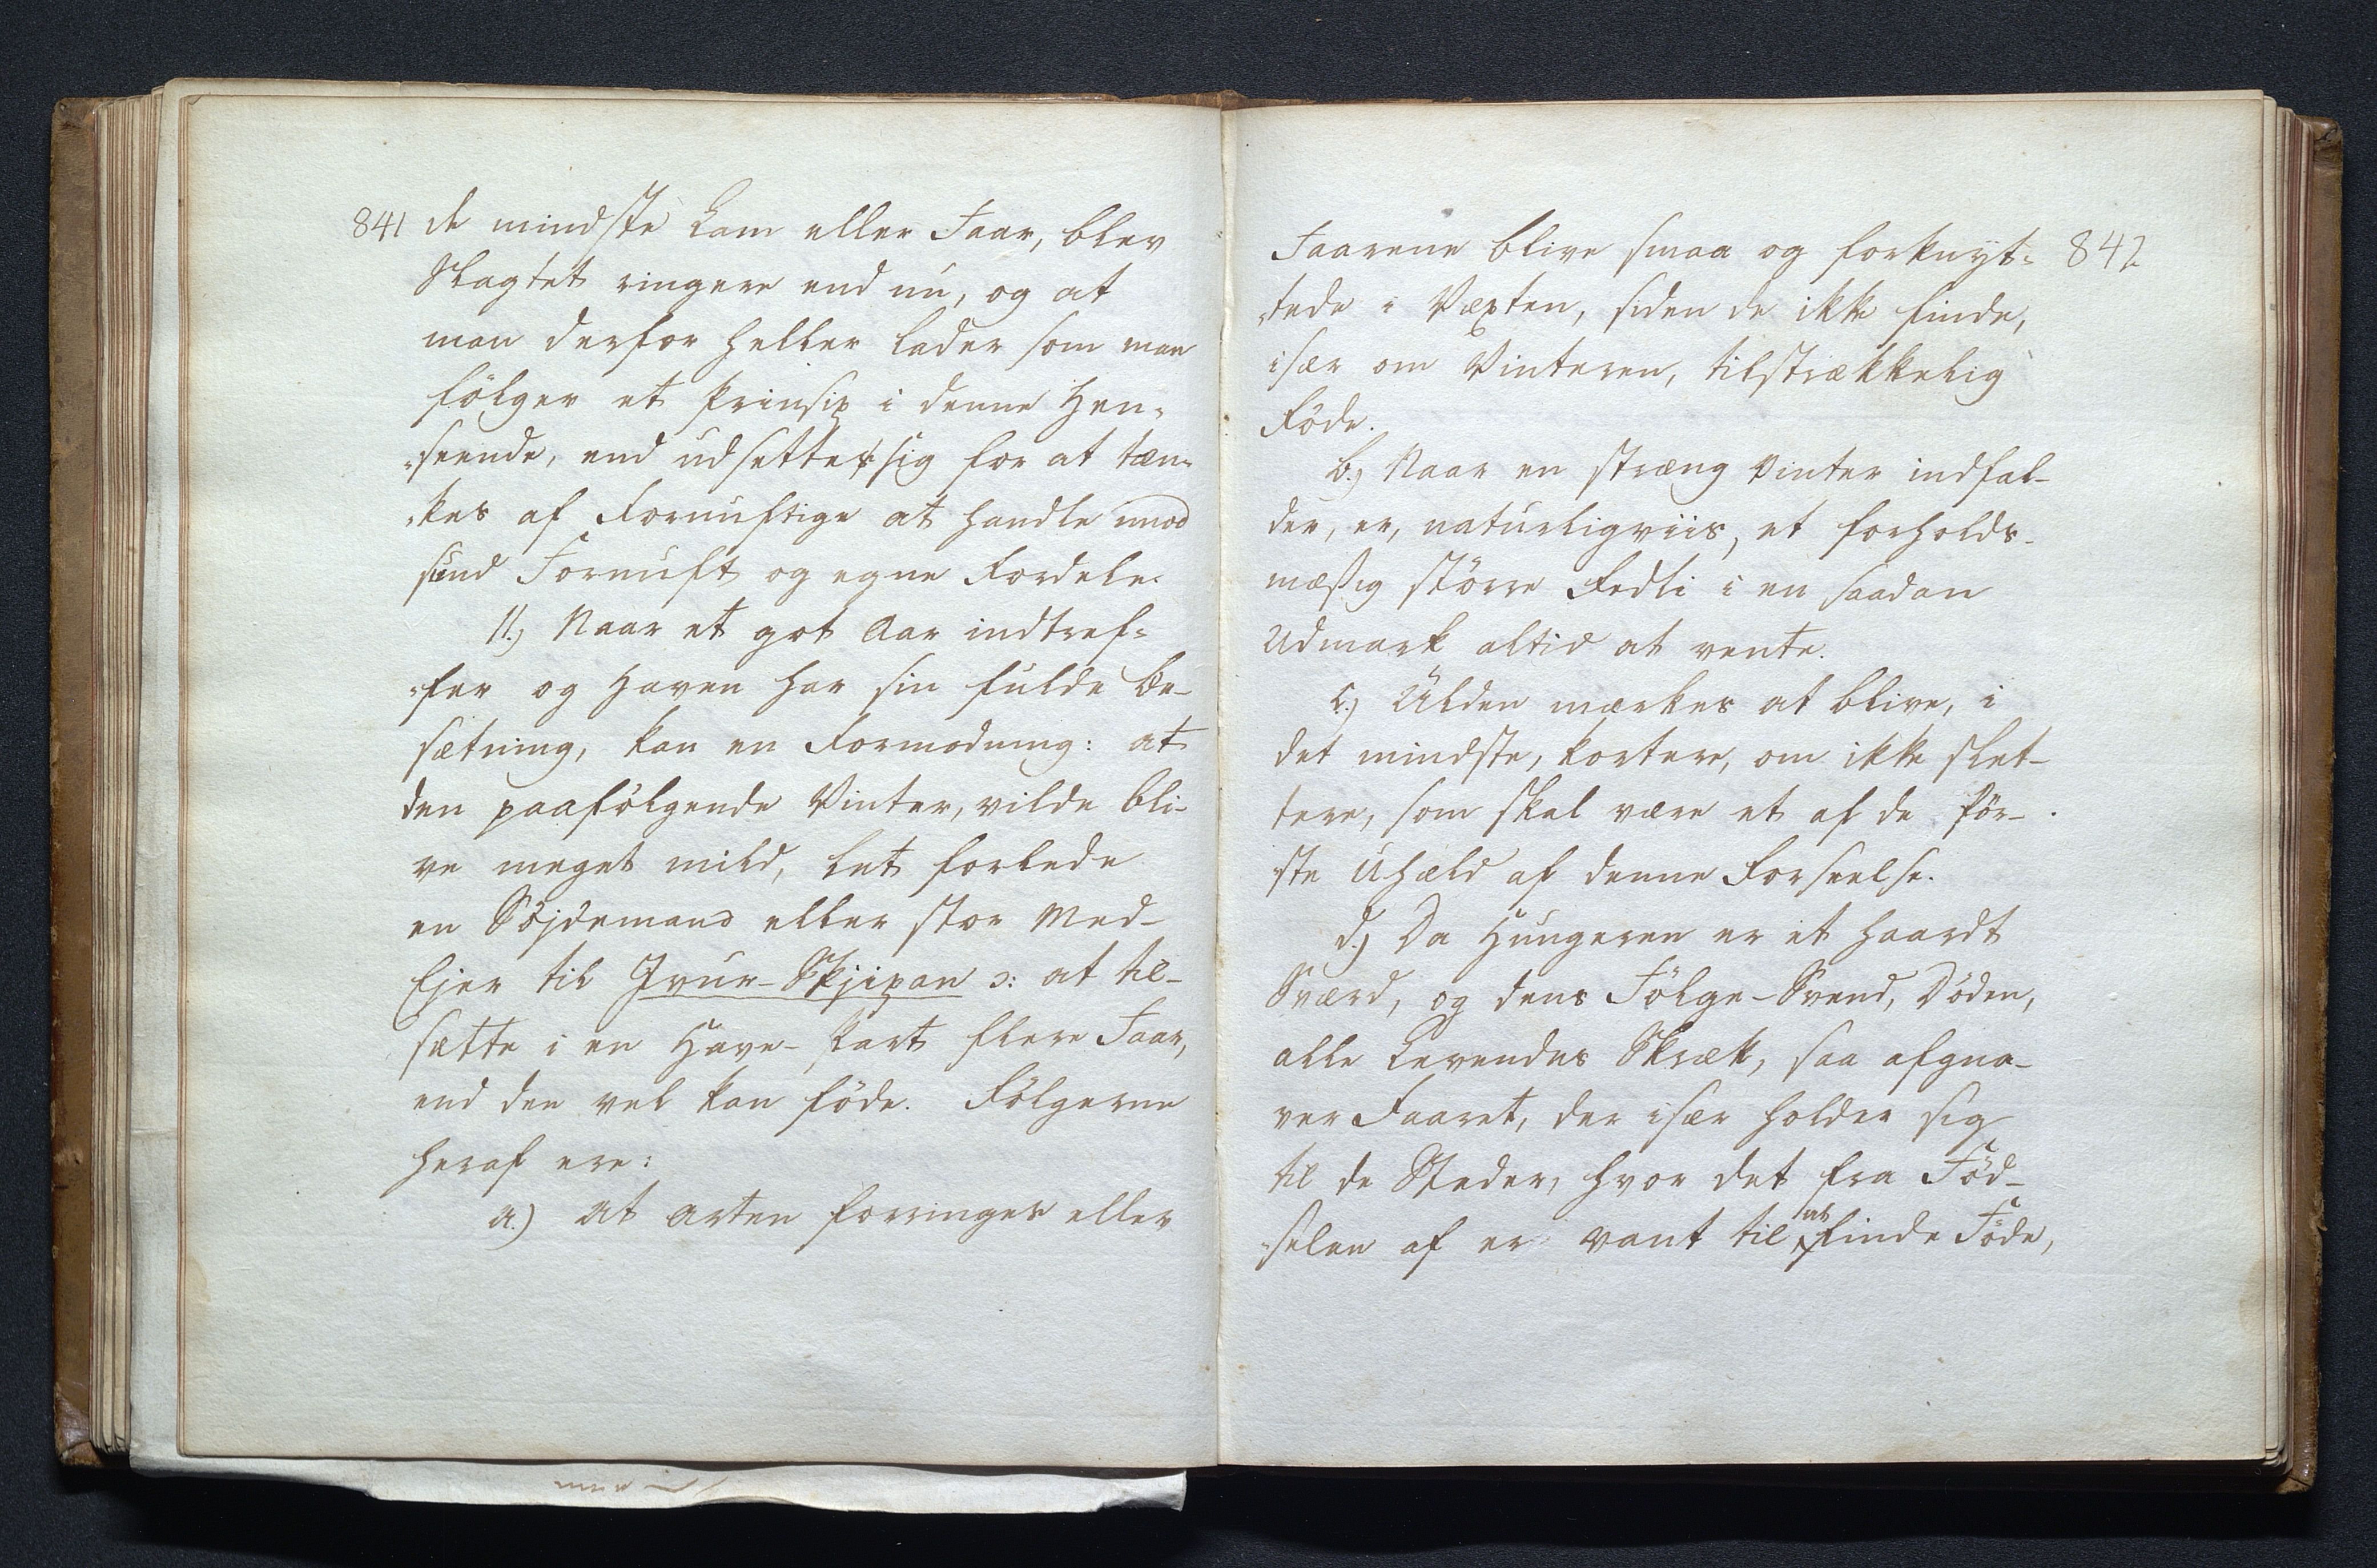 841 de mindste Lam eller Faar, blev
Slagtet ringere end nu, og at
man derfor heller lader som man
følger et Prinsip i denne Hen-
-seende, end udsetter sig for at tæn-
-kes af Fornuftige at handle mod
sund Fornuft og egne Fordele.
11.) Naar et got Aar indtref-
-fer og Haven har sin fulde Be-
sætning, kan en Formodning: at
den paafølgende Vinter, vilde bli-
ve meget mild, let forlede
en Søjdemand eller stor Med-
Ejer til Ivur-Skjipan ɔ: at til-
sætte i en Have-Part flere Faar,
end den vel kan føde. Følgerne
heraf ere:
a.) at Arten forringes eller
Faarene blive smaa og forknyt- 842
-tede i Vexten, siden de ikke finde,
især om Vinteren, tilstrækkelig
Føde.
b.) Naar en stræng Vinter indfal-
der, er, naturligviis, et forholds-
mæssig større Fedli i en saadan
Udmark altid at vente.
c.) Ulden mærkes at blive, i
det mindste, kortere, om ikke slet-
tere, som skal være et af de før-
ste Uhæld af denne Forseelse.
d.) Da Hungeren er et haardt
Sværd, og dens Følge-Svend, Døden,
alle Levendes Skræk, saa afgna-
ver Faaret, der især holder sig
til de Steder, hvor det fra Fød-
-selen af er vant til at finde Føde,